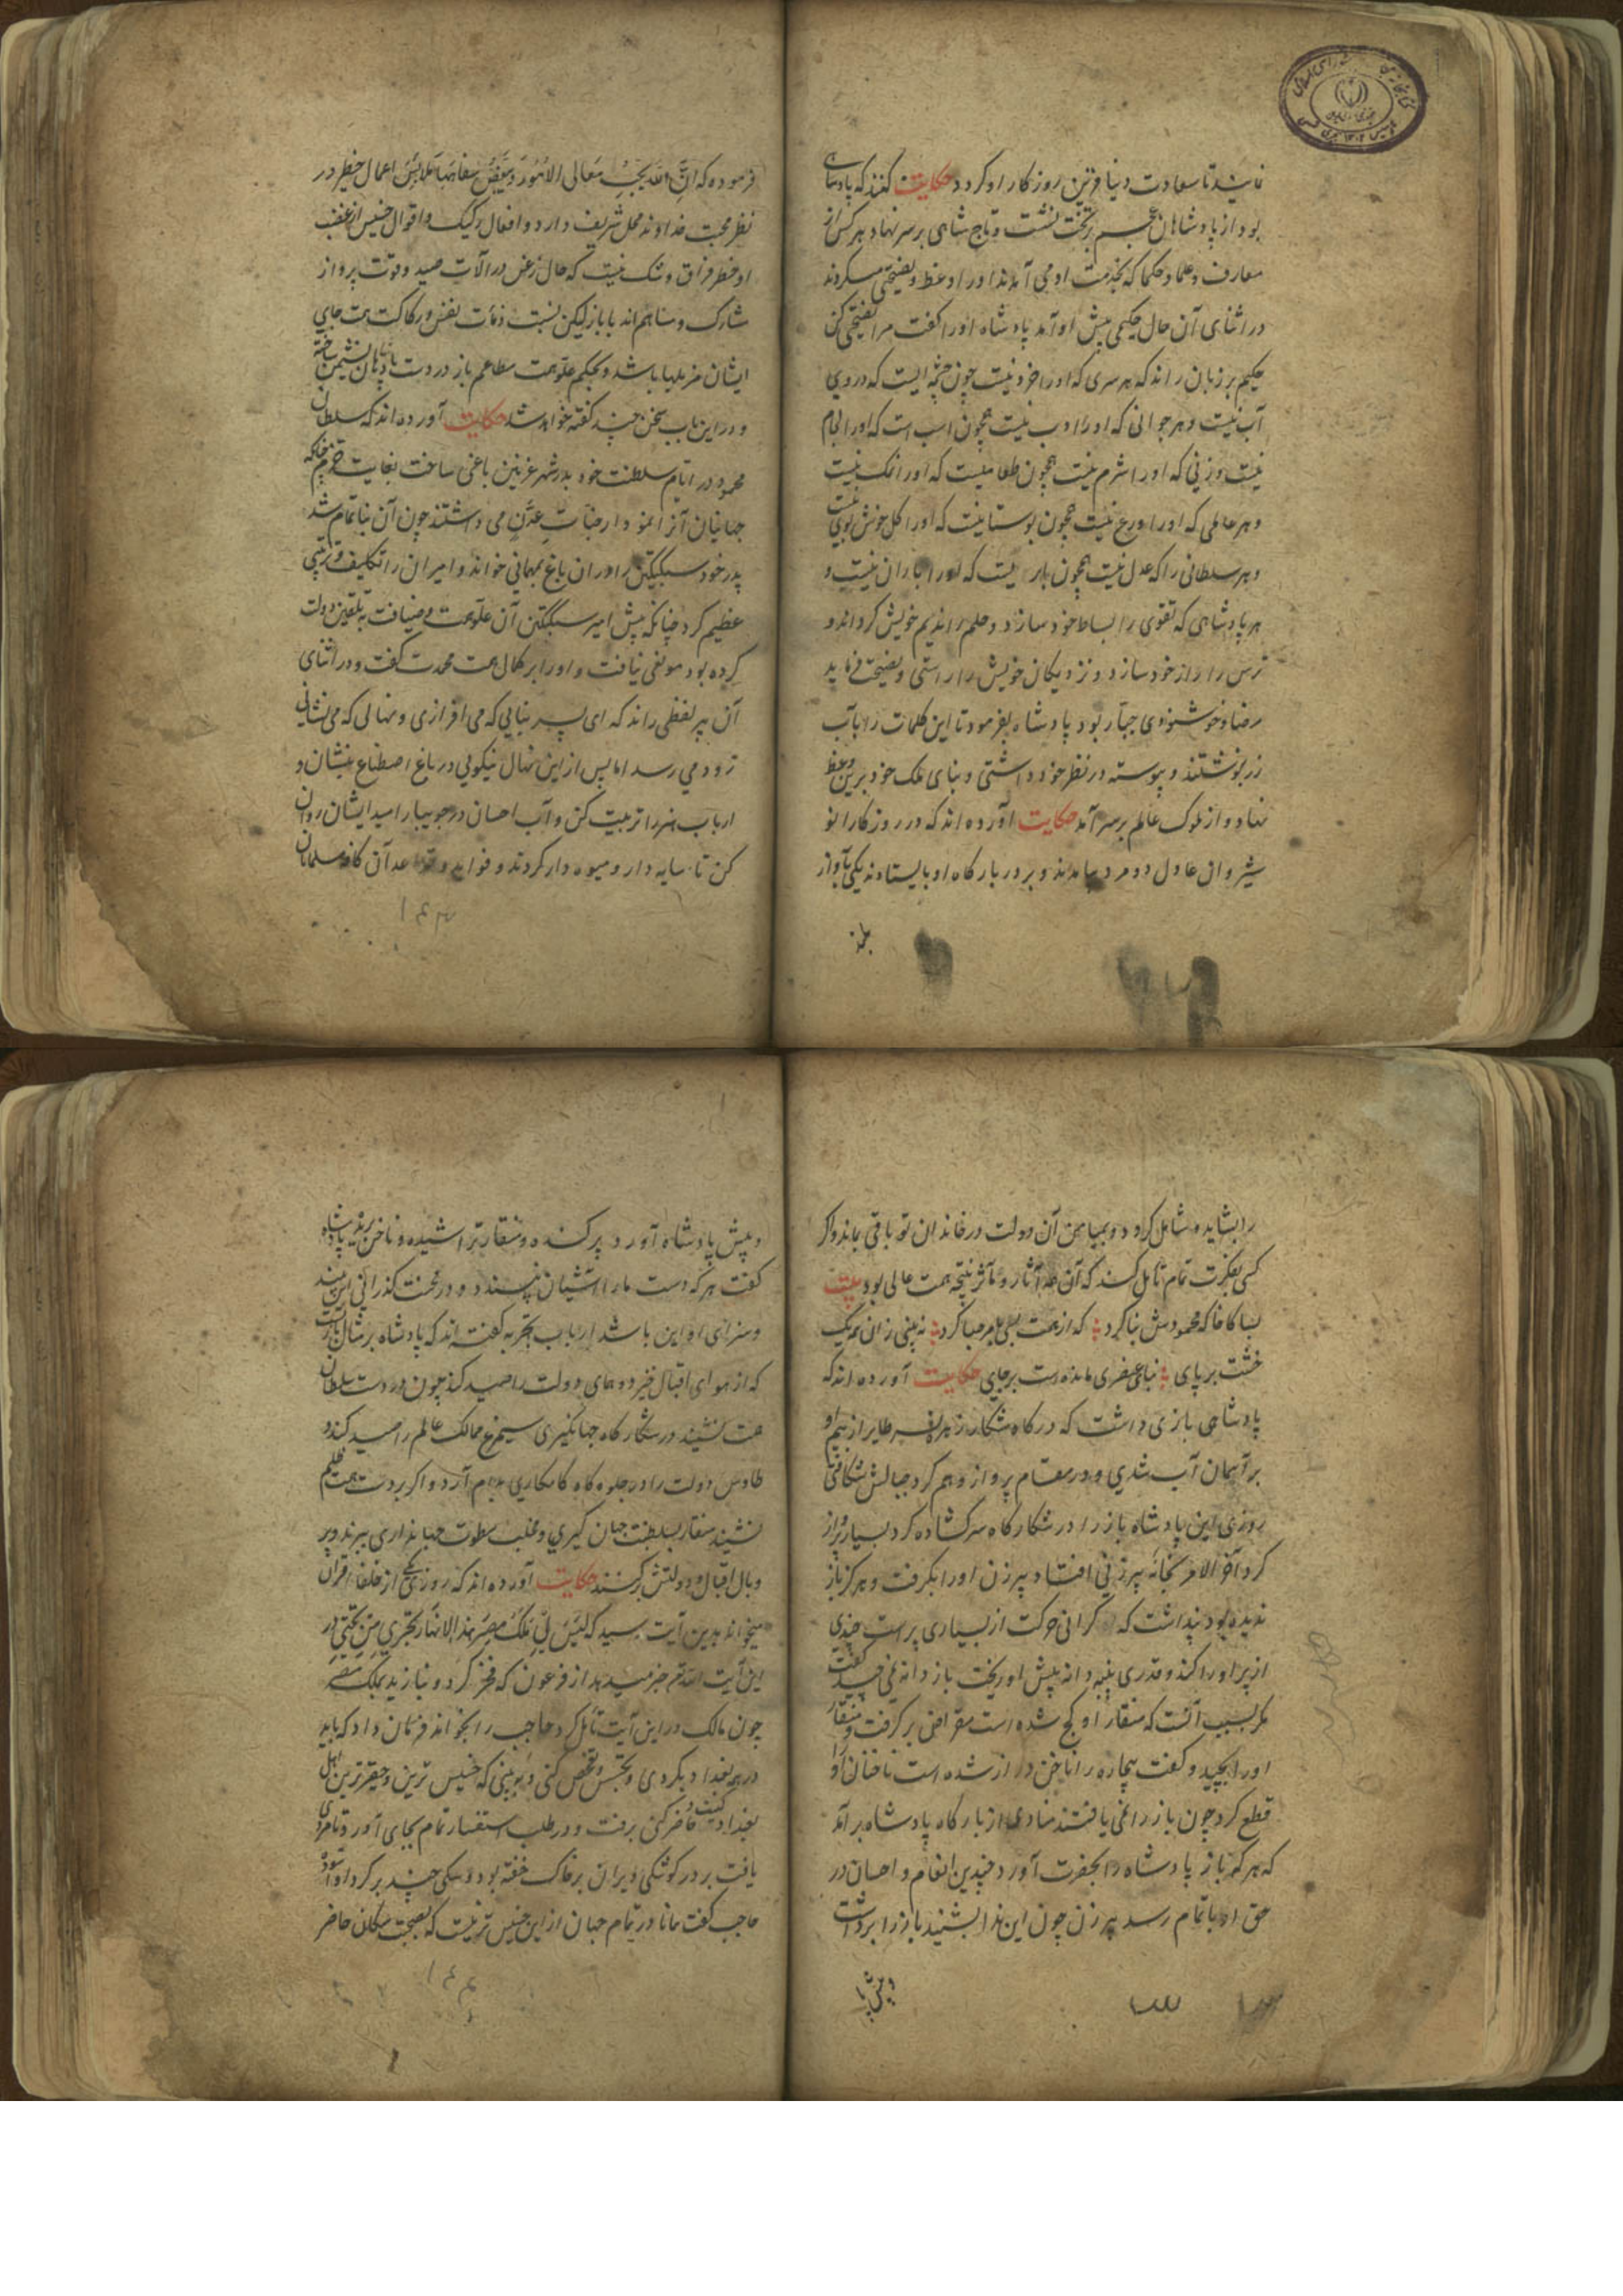 نمایند تا سعادت دنیا قرین روزگار او گردد حکایت گفتند که پادشاهی
بود از پادشاهان عجم بر تخت نشست و تاج شاهی بر سر نهاد هر کس از
معارف و علما و حکما که بخدمت او می آمدند او را وعظ و نصیحتی میکردند
در اثنای آن حال حکیمی پیش او آمد پادشاه او را گفت مرا نصیحتی کن
حکیم بر زبان راند که هر سری که او را خرد نیست چون چشمه ایست که در وی
آب نیست و هر جوانی که او را ادب نیست همچون اسب است که او را لجام
نیست و زنی که او را شرم نیست همچون طعامیست که او را نمک نیست
و هر عالمی که او را ورع نیست همچون بوستانیست که او را گل خوش بوی نیست
و هر سلطانی را که عدل نیست همچون ابریست که او را باران نیست و
هر پادشاهی که تقوی را بساط خود سازد و حلم را ندیم خویش گرداند و
ترس را راز خود سازد و نزدیکان خویش را راستی و نصیحت فرماید
رضا و خوشنودی جبار بود پادشاه بفرمود تا این کلمات را بآب
زر نوشتند و پیوسته در نظر خود داشتی و بنای ملک خود برین وعظ
نهاد و از ملوک عالم بر سر آمد حکایت آورده اند که در روزگار انو
شیروان عادل دو مرد بیامدند و بر در بارگاه او بایستادند یکی بآواز
بلند
فرموده که ان الله یحب معالی الامور و یبغض سفاسفها ملابس اعمال خطیر در
نظر محبت خداوند محل شریف دارد و افعال رکیک و اقوال خسیس از غضب
او خطر فراق و شک نیست که حال زغن در آلات صید و قوت پرواز
مشارک و مساهم اند با باز لیکن نسبت دنائت نفس و رکاکت همت جای
ایشان مزبلها باشد و بحکم علو همت مطاعم باز در دست پادشاهان نشیمن ساخته
و در این باب سخن چند گفته خواهد شد حکایت آورده اند که سلطان
محمود در ایام سلطنت خود بدر شهر غزنین باغی ساخت بغایت خرم چنانکه
جهانیان آنرا نمودار جنات عدن می داشتند چون آن بنا تمام شد
پدر خود سبکتکین را در ان باغ بمهمانی خواند و امیران را تکلیف و ترتیبی
عظیم کرد چنانکه پیش امیر سبکتکین آن علو همت و ضیافت بتلقین دولت
کرده بود موقعی نیافت و او را بر کمال همت محمدت گفت و در اثنای
آن پیر لفظی راند که ای پسر بنایی که می افرازی و نهالی که می نشانی
زود می رسد اما پس از این نهال نیکویی در باغ اصطناع بنشان و
ارباب هنر را تربیت کن و آب احسان در جویبار امید ایشان روان
کن تا سایه دار و میوه دار گردند و فواید و قواعد آن کافه مسلمانان
۱۴۳
را بشاید و شامل گردد و بمیامن آن دولت در خاندان تو باقی بماند و اگر
کسی بفکرت تمام تامل کند که آن همه آثار و مآثر نتیجه همت عالی بود بیت
بسا کاخا که محمودش بنا کرد که از رفعت همی با مه مرا کرد نه بینی زان همه یک
خشت بر پای بنای عنصری مانده است بر جای حکایت آورده اند که
پادشاهی بازی داشت که در گاه شکار زهره نسر طایر از بیم او
بر آسمان آب شدی و در مقام پرواز وهم گرد جبالش شکافتی
روزی این پادشاه باز را در شکارگاه سرگشاده کرد بسیار پرواز
کرد آخر الامر بخانه پیرزنی افتاد پیرزن او را بگرفت و هرگز باز
ندیده بود پنداشت که گرانی حرکت از بسیاری پر است چندی
از پر او را کند و قدری پنبه دانه پیش او ریخت باز دانه نمی چید گفت
مگر بسبب آنست که منقار او کج شده است مقراضی بر گرفت و منقار
او را بچید و گفت بیچاره را ناخن دراز شده است ناخنان او را
قطع کرد چون باز را نمی یافتند منادی از بارگاه پادشاه بر آمد
که هر که باز پادشاه را بحضرت آورد چندین انعام و احسان در
حق او باتمام رسد پیرزن چون این ندا بشنید باز را برداشت
و پیش پا
و پیش پادشاه آورد پر کنده و منقار تراشیده و ناخن بریده پادشاه
گفت هر که دست ما را آشیان نپسندد و در محنت گذرانی این بیند
و سزای او این باشد ارباب تجربه گفته اند که پادشاه بر مثال بازست
که از هوای اقبال خیزد و همای دولت را صید کند چون در دست سلطان
همت نشیند در شکارگاه جهانگیری سیمرغ ممالک عالم را صید کند و
طاوس دولت را در جلوه گاه کامکاری بدام آرد و اگر بر دست همت لئیم
نشیند منقار سلطنت جهان گیری و مخلب سطوت جهانداری ببرند و پر
و بال اقبال و دولتش برکنند حکایت آورده اند که روزی یکی از خلفا قرآن
میخواند بدین آیت رسید که الیس لی ملک مصر و هذه الانهار تجری من تحتی در
این آیت الله تعالی خبر میدهد از فرعون که فخر کرد و بنازید بملک مصر
چون مالک در این آیت تأمل کرد حاجب را بخواند فرمان داد که باید
در همه بغداد بگردی و تجسس و تفحص کنی و ببینی که خسیس ترین و حقیرترین اهل
بغداد کیست و حاضر کنی برفت و در طلب استفسار تمام بجای آورد تا مردی
یافت بر در کوشکی ویران بر خاک خفته بود و سگی چند بر گرد او آسوده
حاجب گفت مانا در تمام جهان از این خسیس تر نیست که بصحبت سگان حاضر
۱۴۴